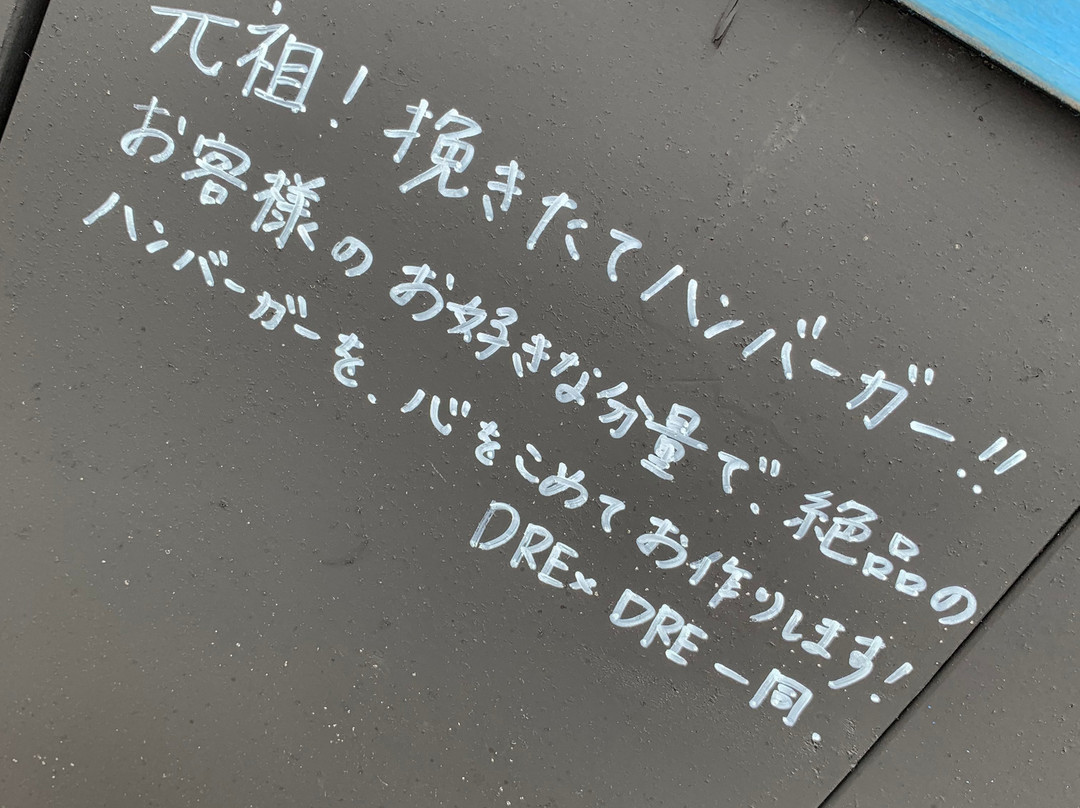 元祖！挽きたてハンバーガー!!
お客様のお好きな分量で、絶品の
ハンバーガーを、心をこめてお作りします！
DRE×DRE一同.